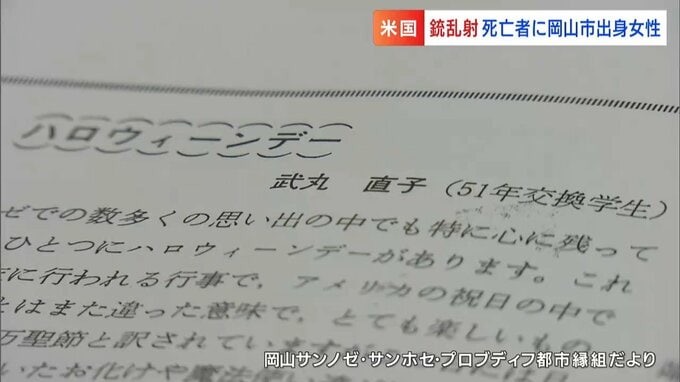 米国 銃乱射 死亡者に岡山市出身女性
ハロウィーンデー
武丸 直子(51年交換学生)
ゼでの数多くの思い出の中でも特に心に残って
ひとつにハロウィーンデーがあります。これ
に行われる行事で、アメリカの祝日の中で
とはまた違った意味で、とても楽しいもの
万聖節と訳されていますが
いたお化けや魔法使い
岡山サンノゼ・サンホセ・プロブディフ都市縁組だより